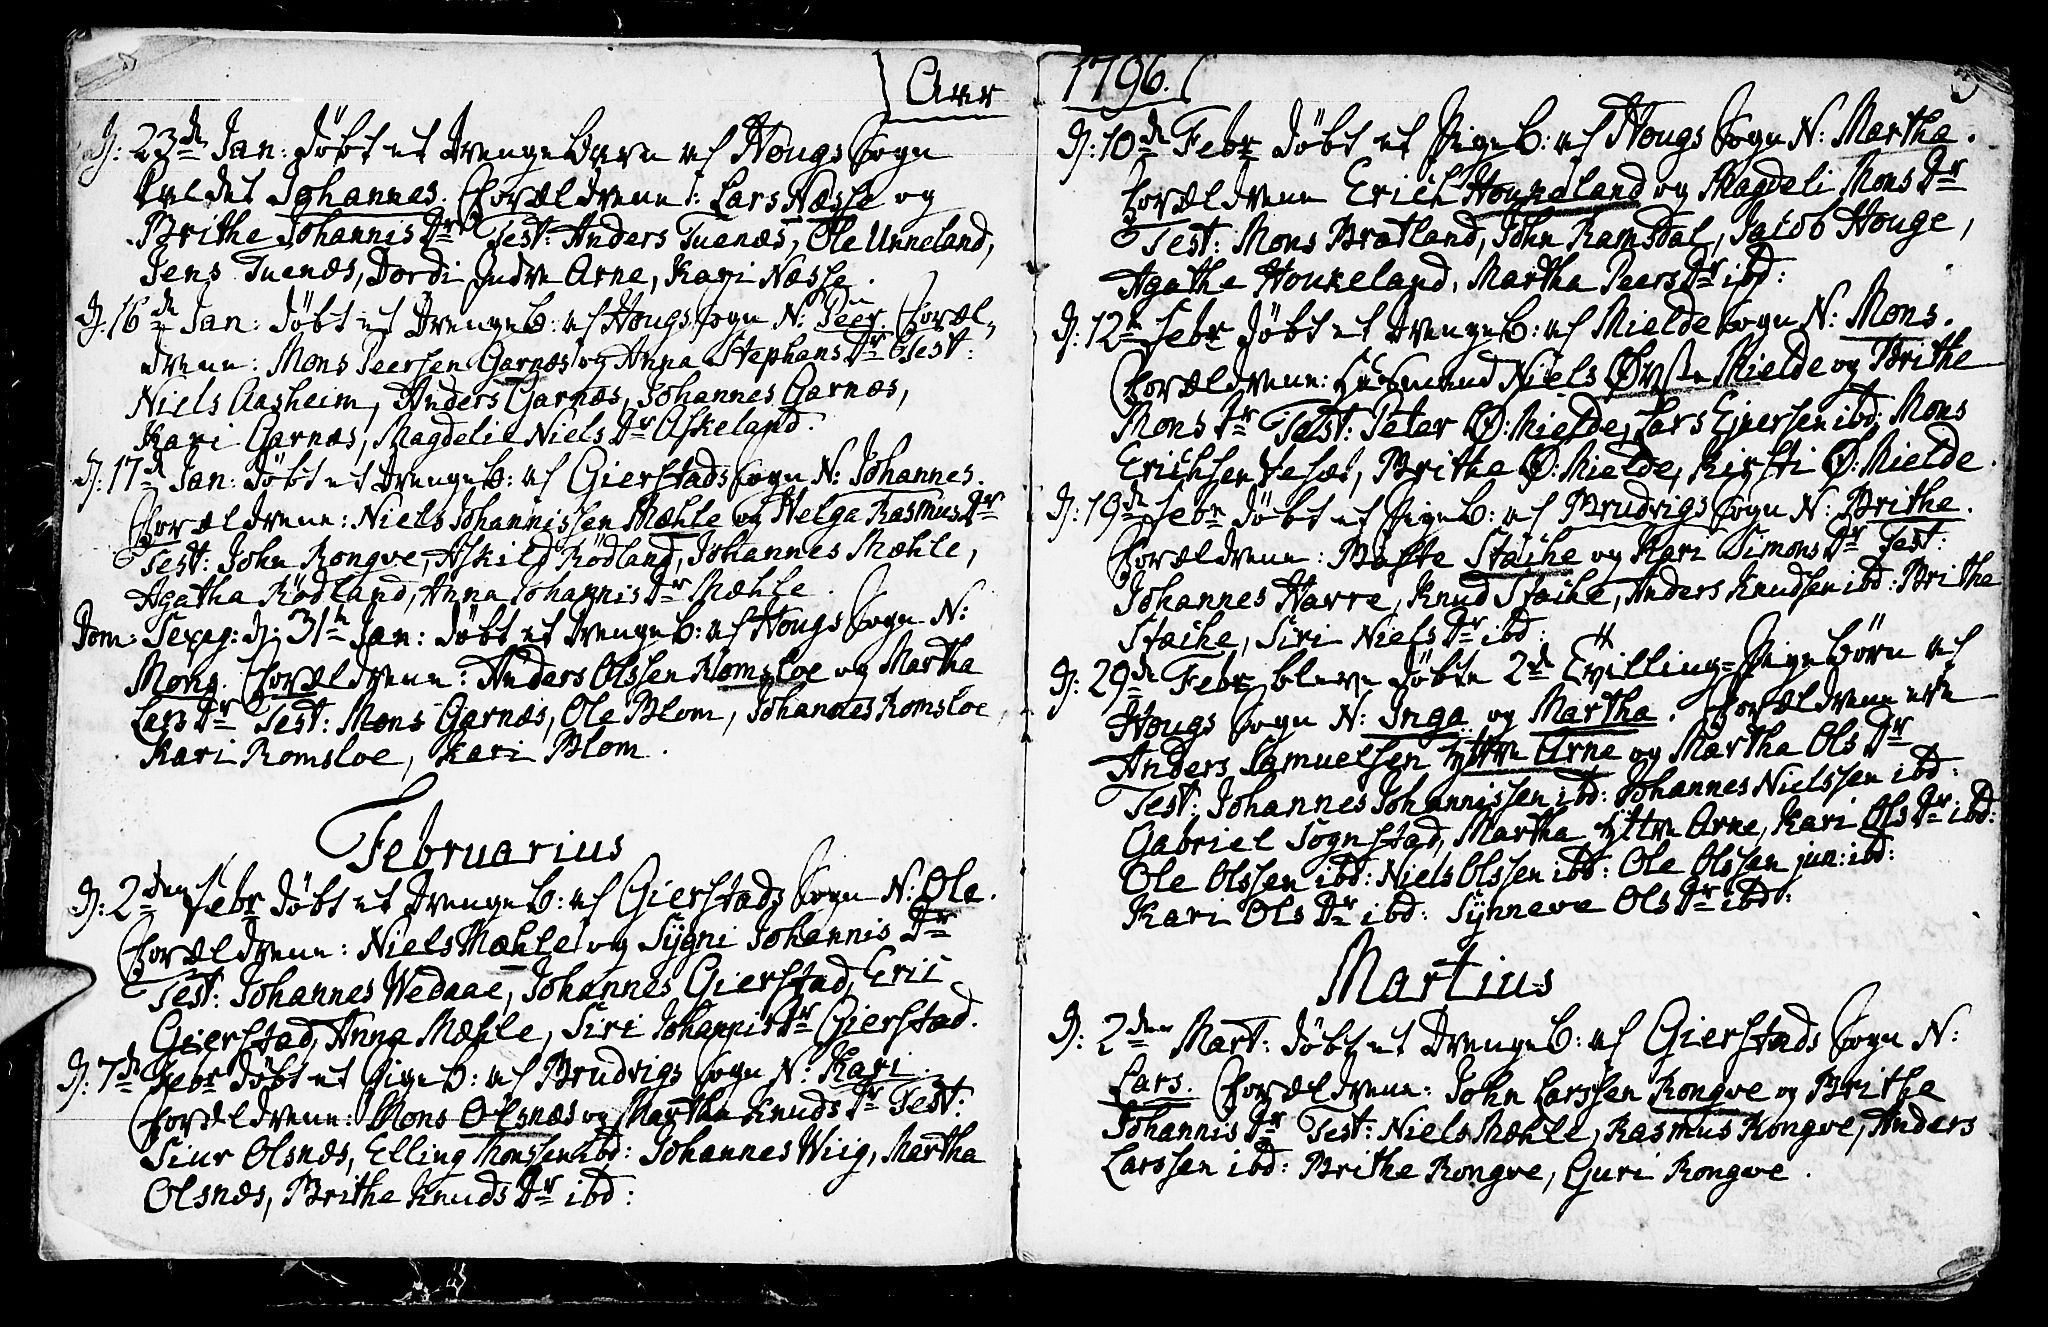 Ann
D: 23de Jan: döbt et Drengebarn af Hougs Sogn
kaldet Johannes. Forældrene: Lars Næsse og
Brithe Johannis Dr Test: Anders Tuenæs, Ole Unneland,
Jens Tuenæs, Dordi Indre Arne, Kari Næsse.
D: 16de Jan: döbt et Drengeb: af Hougs Sogn N: Peer Foræl-
drene: Mons Peersen Garnæs og Anna Stephans Dr Test:
Niels Aasheim, Anders Garnæs, Johannes Garnæs,
Kari Garnæs, Magdeli Niels Dr Askeland.
D: 17de Jan: döbt et Drengeb: af Gierstads Sogn N: Johannes.
Forældrene: Niels Johannissen Mæhle og Helga Rasmus Dr
Test: John Rongve, Askild Rödland, Johannes Mæhle,
Agatha Rödland, Anna Johannis Dr Mæhle.
Dom: Sexag: D: 31te Jan: döbt et Drengeb: af Hougs Sogn N:
Mons. Forældrene: Anders Olssen Romsloe og Martha
Lars Dr Test: Mons Garnæs, Ole Blom, Johannes Romsloe,
Kari Romsloe, Kari Blom.
Februarius
D: 2den Febr döbt et Drengeb: af Gierstads Sogn N: Ole.
Forældrene: Niels Mæhle og Sygni Johannis Dr
Test: Johannes Wedaae, Johannes Gierstad, Eric
Gierstad, Anna Mæhle, Siri Johannis Dr Gierstad.
D: 7de Febr döbt et Pigeb: af Brudvigs Sogn N: Kari.
Forældrene: Mons Olsnæs og Martha Knuds Dr Test:
Siur Olsnæs, Elling Monssen ibd: Johannes Wiig, Martha
Olsnæs, Brithe Knuds Dr ibd:
1796.
D: 10de Febr döbt et Pigeb: af Hougs Sogn N: Martha.
Forældrene Erich Houkeland og Magdeli Mons Dr
Test: Mons Brætland, John Ramsdal, Jacob Houge,
Agathe Houkeland, Martha Peers Dr ibd:
D: 12te Febr döbt et Drengeb: af Mielde Sogn N: Mons.
Forældrene: Huusmand Niels Øvste Mielde og Brithe
Mons Dr Test: Peter Ø: Mielde, Lars Ejversen ibd: Mons
Erichsen Veset, Brithe Ø: Mielde, Kirsti Ø: Mielde.
D: 19de Febr döbt et Pigeb: af Brudvigs Sogn N: Brithe.
Forældrene: Baste Stæihe og Kari Simons Dr Test:
Johannes Harre, Knud Stæihe, Anders Knudsen ibd: Brithe
Stæihe, Siri Niels Dr ibd:
D: 29de Febr bleve döbte 2de Tvilling-Pigebörn af
Hougs Sogn N: Inga og Martha. Forældrene ere
Anders Samuelsen Yttre Arne og Martha Ols Dr
Test: Johannes Johannissen ibd: Johannes Nielssen ibd:
Gabriel Sognstad, Martha Yttre Arne, Kari Ols Dr ibd:
Ole Olssen ibd: Niels Olssen ibd: Ole Olssen jun: ibd:
Kari Ols Dr ibd: Synneve Ols Dr ibd:
Martius
D: 2den Mart: döbt et Drengeb: af Gierstads Sogn N:
Lars. Forældrene: John Larssen Rongve og Brithe
Johannis Dr Test: Niels Mæhle, Rasmus Rongve, Anders
Larssen ibd: Brithe Rongve, Guri Rongve.